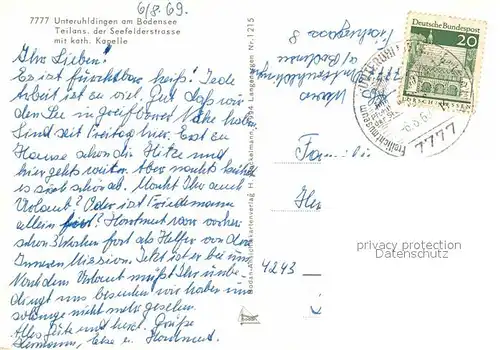 6/8.69.
7777 Unteruhldingen am Bodensee
Teilans. der Seefelderstrasse
mit kath. Kapelle
Ihr Lieben!
Es ist furchtbar heiß! Jede
Arbeit ist zu viel. Gut daß wir
den See in greifbarer Nähe haben.
Sind seit Freitag hier. Erst zu
Hause schon die Hitze und
hier geht's weiter. Aber nachts kühlt
es sich schön ab. Macht Ihr auch
Urlaub? Oder ist Friedemann
allein fort? Hartmut war vorher
schon 3 Wochen fort als Helfer von der
Inneren Mission. Jetzt ist er bei uns
Nach dem Urlaub müßt Ihr unbe-
dingt uns besuchen wir haben uns
solange nicht mehr gesehen.
Alles Gute und herzl. Grüße
Hermann, Else u. Hartmut.
Baden-Ansichtskartenverlag H. 7994 Langenargen Nr. 1215
8
7777 Unteruhldingen
a/Bodensee
Deutsche Bundespost
20
LORSCH/HESSEN
Freilichtmuseum
7777
Familie
4243
privacy protection
Datenschutz